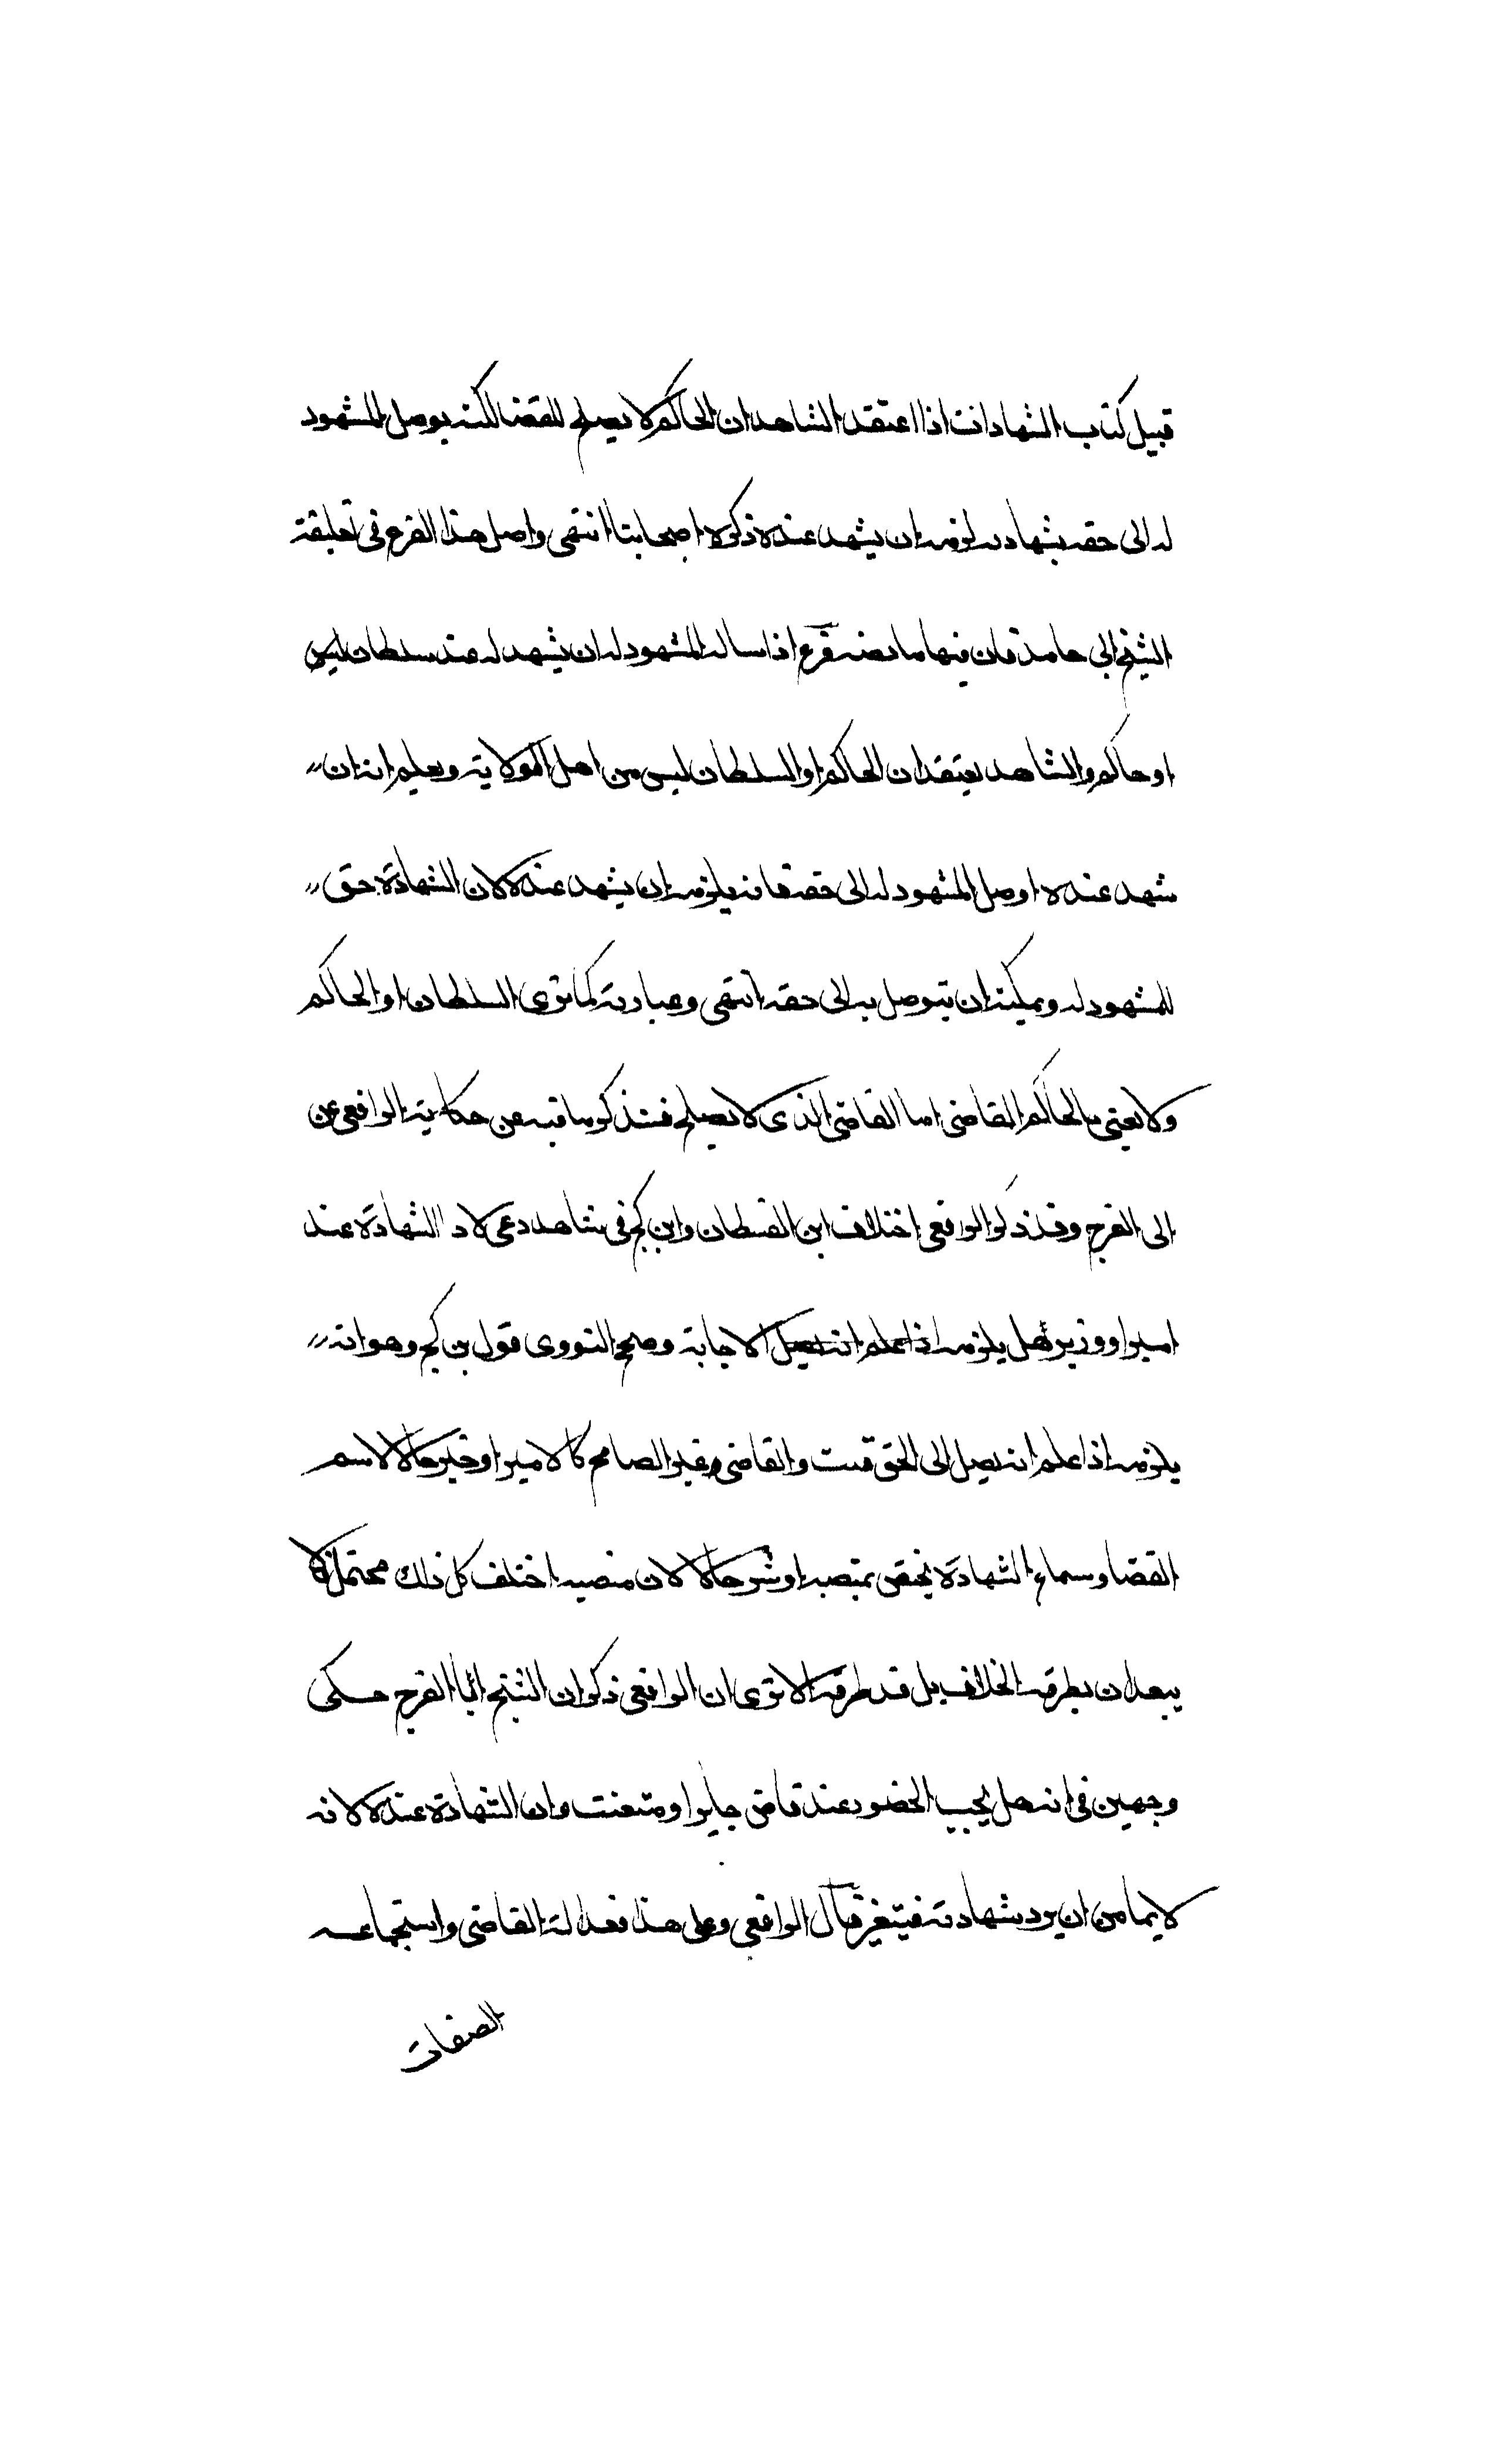 قبيل كتاب الشهادات اذا اعتقد الشاهد ان الحاكم لا يصلح للقضا لكنه يوصل المشهود
له الى حقه بشهادته لزمه ان يشهد عنده ذكره اصحابنا انتهى واصل هذا الفرع فى تعليقة
الشيخ ابى حامد فان فيها ما نصه فرع اذا ساله المشهود له ان يشهد له عند سلطان ليس
او حاكم والشاهد يعتقد ان الحاكم او السلطان ليس من اهل الولاية ويعلم انه ان
شهد عنده اوصل المشهود له الى حقه فانه يلزمه ان يشهد عنده لان الشهادة حق
للمشهود له ويمكنه ان يتوصل به الى حقه انتهى وعبارته كما ترى السلطان او الحاكم
ولا يعنى بالحاكم القاضى اما القاضى الذى لا يصلح فسنذكر ما فيه عن حكاية الرافعى عن
الى الفرج وقد ذكر الرافعى اختلاف ابن القطان وابن كج فى شاهد دعى لاداء الشهادة عند
امير او وزير هل يلزمه اذا علم انه يصل الاجابة وصحح النووى قول بن كج وهو انه
يلزمه اذا علم انه يصل الى الحق قلت والقاضى غير الصالح كالامير او خير حالا لاسم
القضا وسماع الشهادة يختص بمنصبه او شر حالا لان منصبه اختلف كل ذلك محتمل فلا
يبعد ان يطرقه الخلاف بل قد طرقه الا ترى ان الرافعى ذكر ان الشيخ ابا الفرج حكى
وجهين فى انه هل يجب الحضور عند قاض جاير او متعنت وان الشهادة عنده لانه
لا يامن ان يرد شهادته فيتغير قال الرافعى وعلى هذا فعدالة القاضى واستجماعه
الصفات